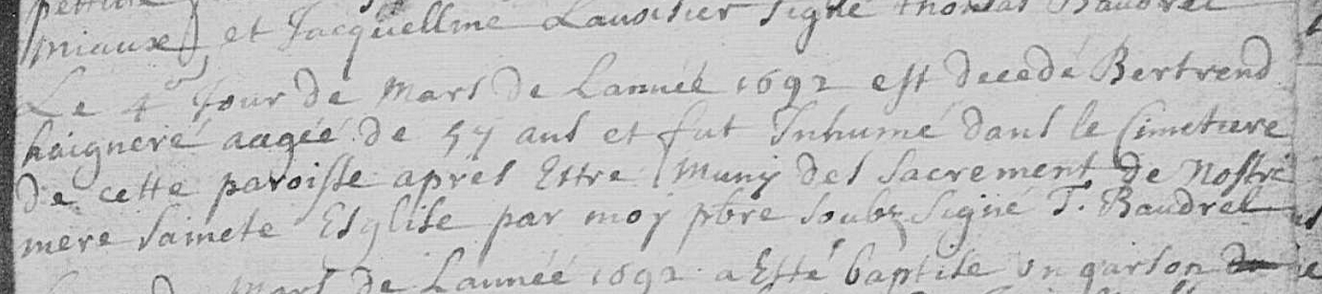 miaux et Jacquelline Lavoisier signé thomas Baudrel
Le 4e Jour de Mars de Lanneé 1692 est decedé Bertrend
haigneré aageé de 57 ans et fut Inhumé dans le Cimetiere
de cette paroisse apres Estre Muny des Sacrement de Nostre
mere saincte Esglise par moy pbre soubz signé T. Baudrel
Mars de Lanneé 1692 a Esté baptise un garson